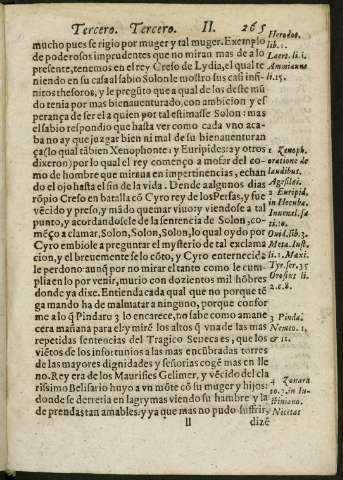 Tercero. Tercero. II. 265
mucho pues se rigio por muger y tal muger. Exemplo
de poderosos imprudentes que no miran mas de a lo
presente, tenemos en el rey Creso de Lydia, el qual te
niendo en su casa al sabio Solon le mostro sus casi infi-
nitos thesoros, y le pregũto que a qual de los deste mũ
do tenia por mas bienauenturado, con ambicion y es
perança de ser el a quien por tal estimasse Solon: mas
el sabio respondio que hasta ver como cada vno aca-
ba no ay que juzgar bien ni mal de su bienauenturan
ça (lo qual tãbien Xenophonte 1 y Euripides 2 y otros
dixeron) por lo qual el rey começo a mofar del co-
mo de hombre que miraua en impertinencias, echan
do el ojo hasta el fin de la vida. Dende a algunos dias
rõpio Creso en batalla cõ Cyro rey de los Persas, y fue
vẽcido y preso, y mãdo quemar viuo: y viendose a tal
punto, y acordandose le de la sentencia de Solon, co-
mẽço a clamar, Solon, Solon, Solon, lo qual oydo por
Cyro embiole a preguntar el mysterio de tal exclama
cion, y el breuemente se lo cõto, y Cyro enternecido
le perdono: aunq̃ por no mirar el tanto como le cum-
plia en lo por venir, murio con dozientos mil hõbres
donde ya dixe. Entienda cada qual que no porque tẽ
ga mando ha de malmatar a ninguno, porque confor
me a lo q̃ Pindaro 3 lo encarece, no sabe como amane
cera mañana para el: y mirẽ los altos q̃ vna de las mas
repetidas sentencias del Tragico Seneca es, que los
viẽtos de los infortunios a las mas encũbradas torres
de las mayores dignidades y señorias cogẽ mas en lle
no. Rey era de los Maurisies Gelimer, y vẽcido del cla
rissimo Belisario huyo a vn mõte cõ su muger y hijos:
donde se derretia en lagrymas viendo su hambre y la
de prendas tan amables: y ya que mas no pudo sufrir,
Ll dize
Herodot.
lib. 1.
Laert. li. 1.
Ammianus
li. 15.
1 Xenoph.
oratione de
laudibus.
Agesilai.
2 Euripid.
in Hecuba.
Iuuenal. sa
ti. 10.
Ouid. lib. 3.
Meta. Iust.
li. 1. Maxi.
Tyr. ser. 35
Orosius li.
2. c. 8.
3 Pinda.
Nemeo. 1.
& 11.
4 Zonara
to. 3. in Iu-
stiniano.
Nicetas